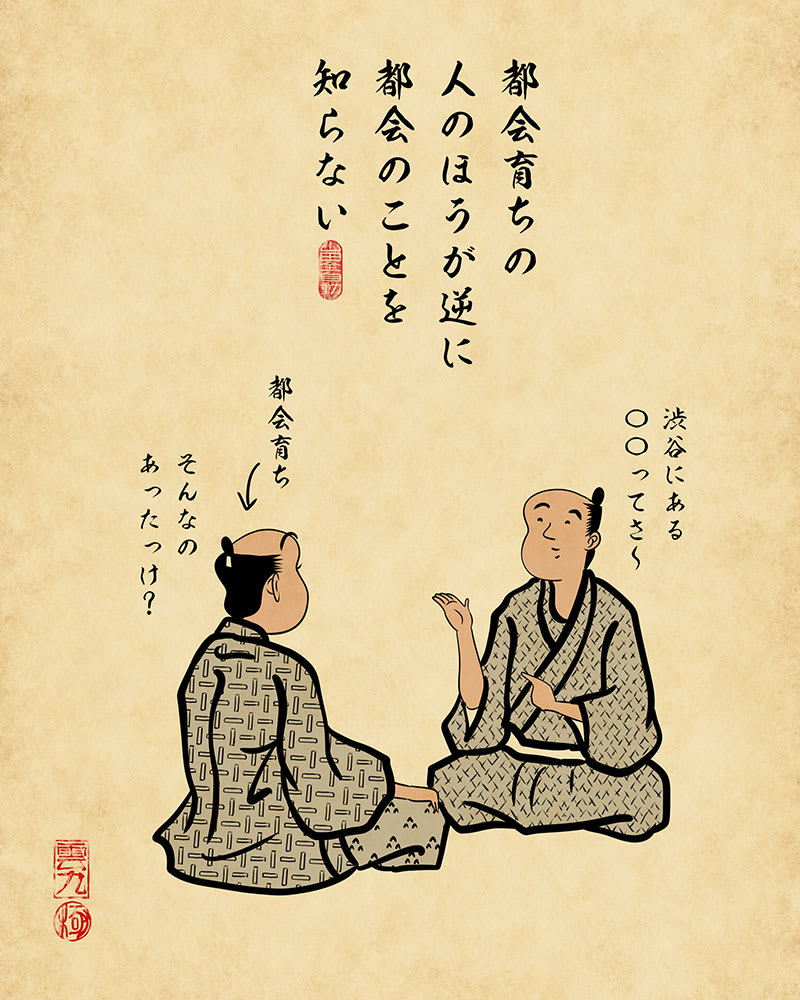 都会育ちの
人のほうが逆に
都会のことを
知らない
渋谷にある
〇〇ってさ〜
都会育ち
そんなの
あったっけ？